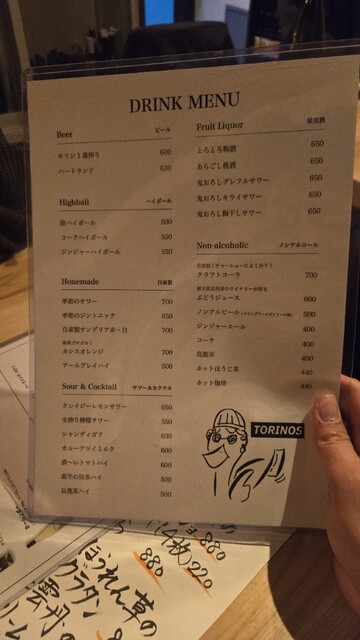 DRINK MENU
Beer ビール
キリン1番搾り 600
ハートランド 630
Highball ハイボール
ハイボール 500
コークハイボール 550
ジンジャーハイボール 550
Homemade 自家製
季節のサワー 700
季節のジントニック 650
自家製サングリア赤・白 700
カシスオレンジ 700
アールグレイハイ 600
Sour & Cocktail サワー&カクテル
クレイジーレモンサワー 650
生搾り檸檬サワー 550
シャンディガフ 630
カルーアソイミルク 600
濃〜いトマトハイ 600
500
烏龍茶ハイ 500
Fruit Liquor 果実酒
とろとろ梅酒 650
あらごし桃酒 650
鬼おろしグレフルサワー 650
鬼おろしキウイサワー 650
鬼おろし梅干しサワー 650
Non-alcoholic ノンアルコール
クラフトコーラ 700
ぶどうジュース 600
ノンアルビール 500
ジンジャーエール 400
コーラ 400
烏龍茶 400
ホットほうじ茶 440
ホット珈琲 440
TORINOS
880
(4枚) 220
880
ほうれん草の
グラタン
雲丹の